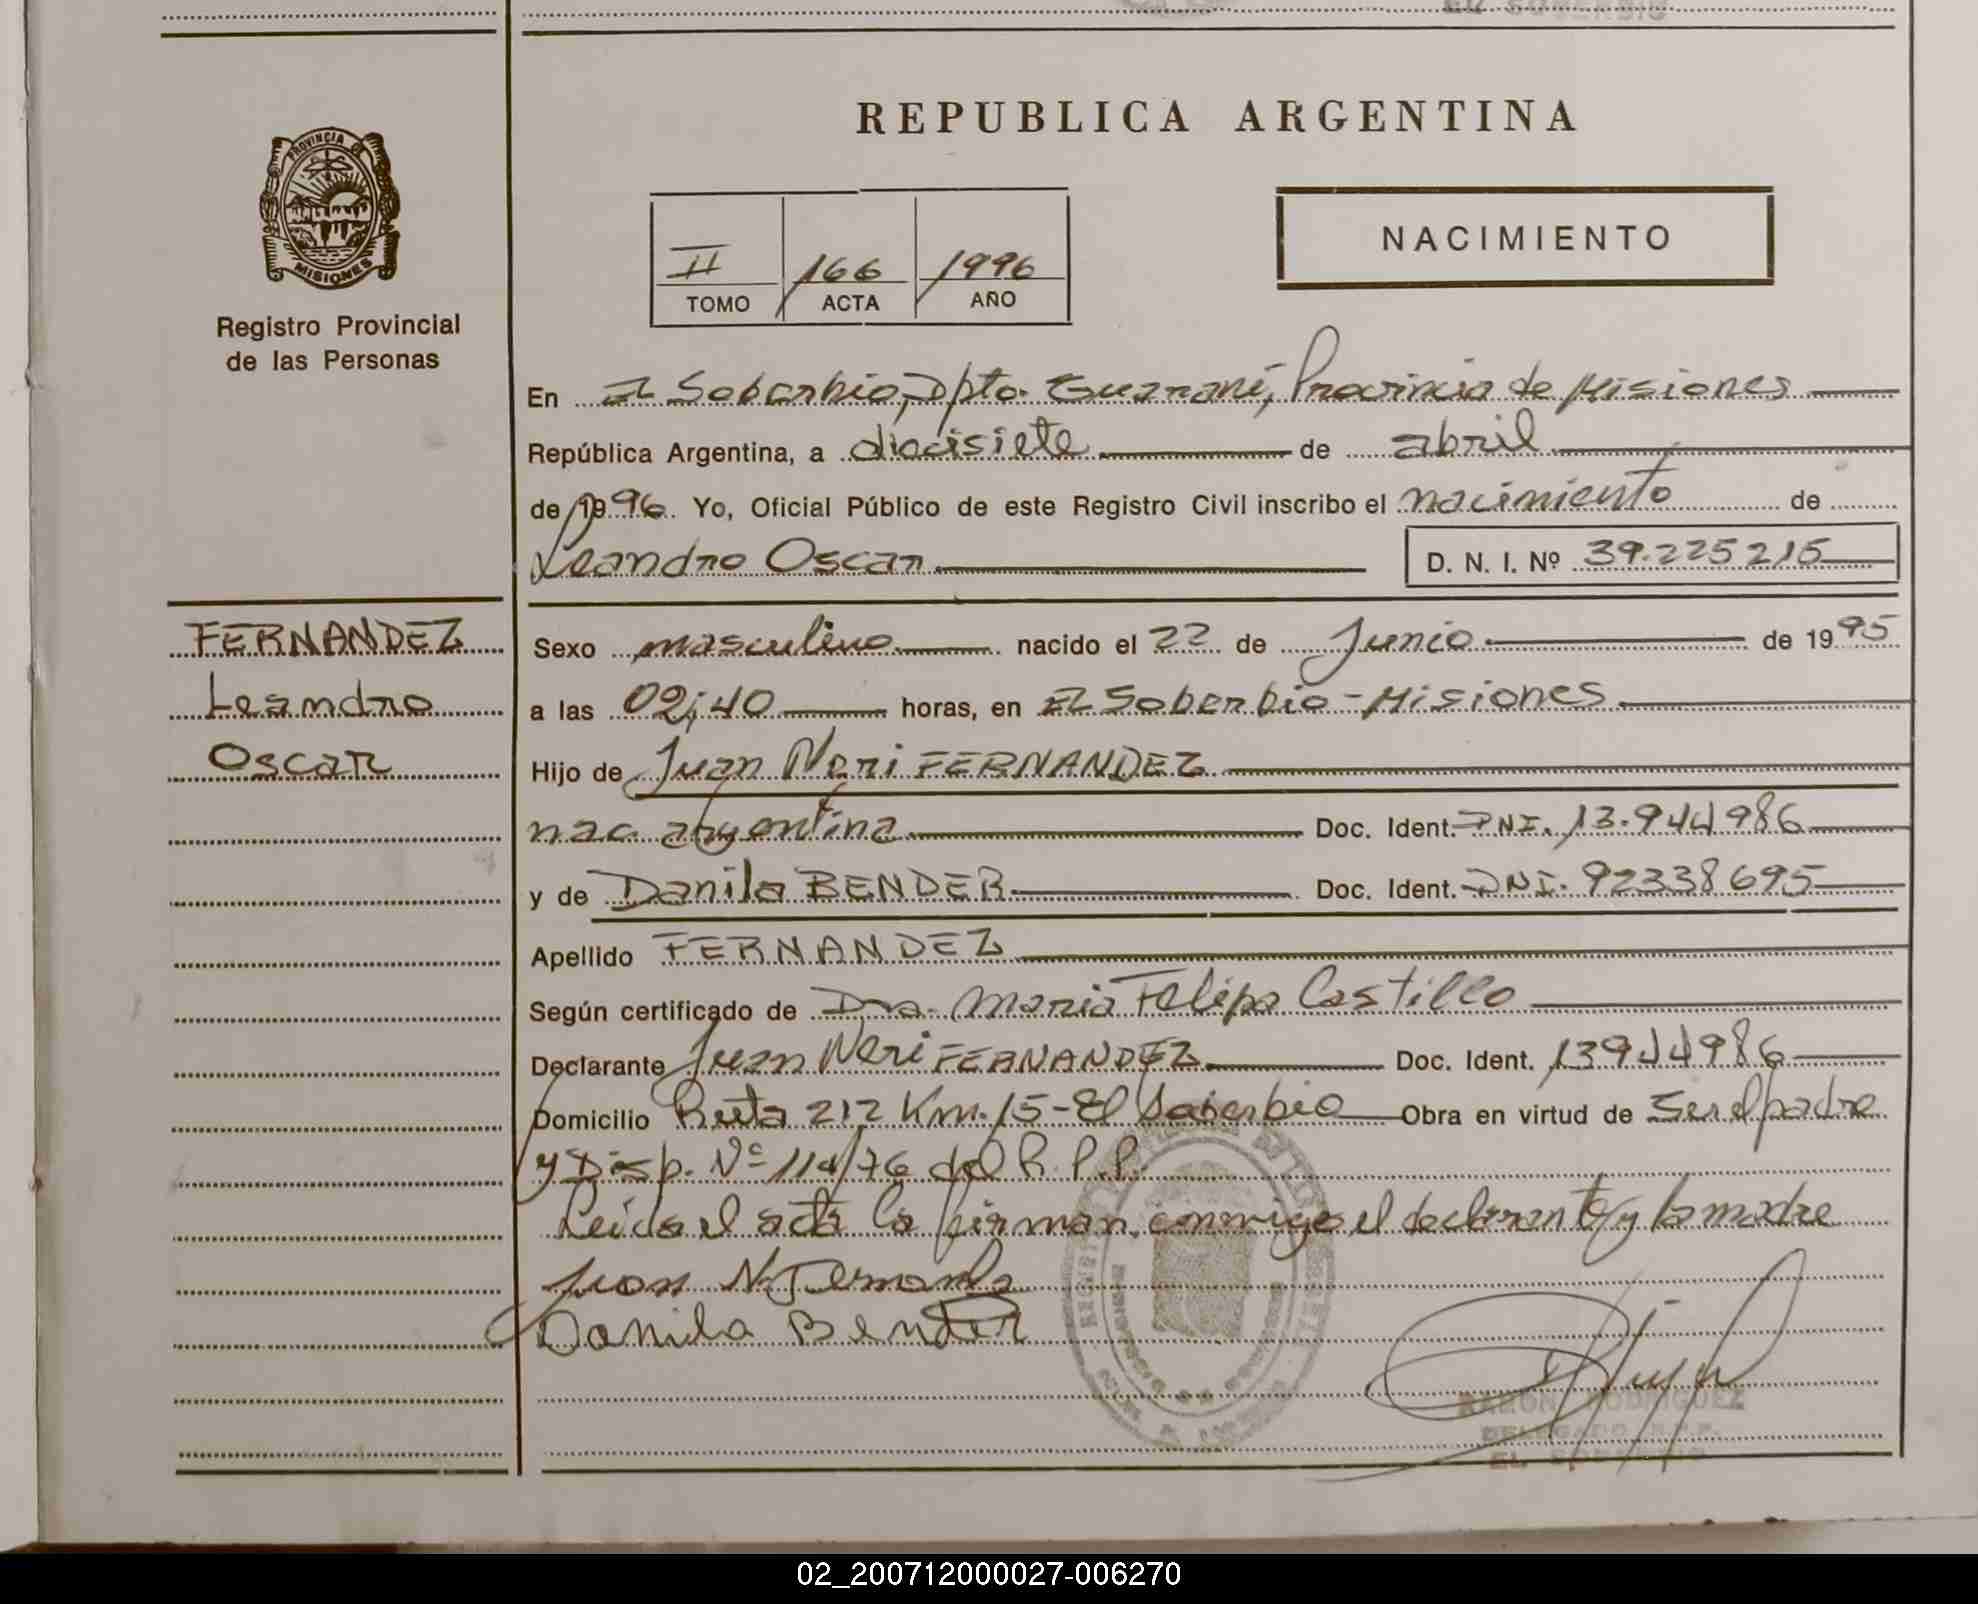 EL SOBERBIO
REPUBLICA ARGENTINA
PROVINCIA DE
MISIONES
Registro Provincial
de las Personas
II 166 1996
TOMO ACTA AÑO
NACIMIENTO
En El Soberbio, Dpto. Guaraní, Provincia de Misiones
República Argentina, a diecisiete de abril
de 1996. Yo, Oficial Público de este Registro Civil inscribo el nacimiento de
Leandro Oscar D. N. I. Nº 39.225215
FERNANDEZ
Leandro
Oscar
Sexo masculino nacido el 22 de Junio de 1995
a las 02;40 horas, en El Soberbio - Misiones
Hijo de Juan Neri FERNANDEZ
nac. argentina Doc. Ident. DNI. 13.944986
y de Danila BENDER Doc. Ident. DNI. 92338695
Apellido FERNANDEZ
Según certificado de Dra. Maria Felipa Castillo
Declarante Juan Neri FERNANDEZ Doc. Ident. 13944986
Domicilio Ruta 212 Km. 15 - El Soberbio Obra en virtud de Ser el padre
y Disp. Nº 114/76 del R. P. P.
Leida el acta la firman conmigo el declarante y la madre
Juan N. Fernande
Danila Bender
RAMON RODRIGUEZ
DELEGADO R.P.P.
EL SOBERBIO
02_200712000027-006270